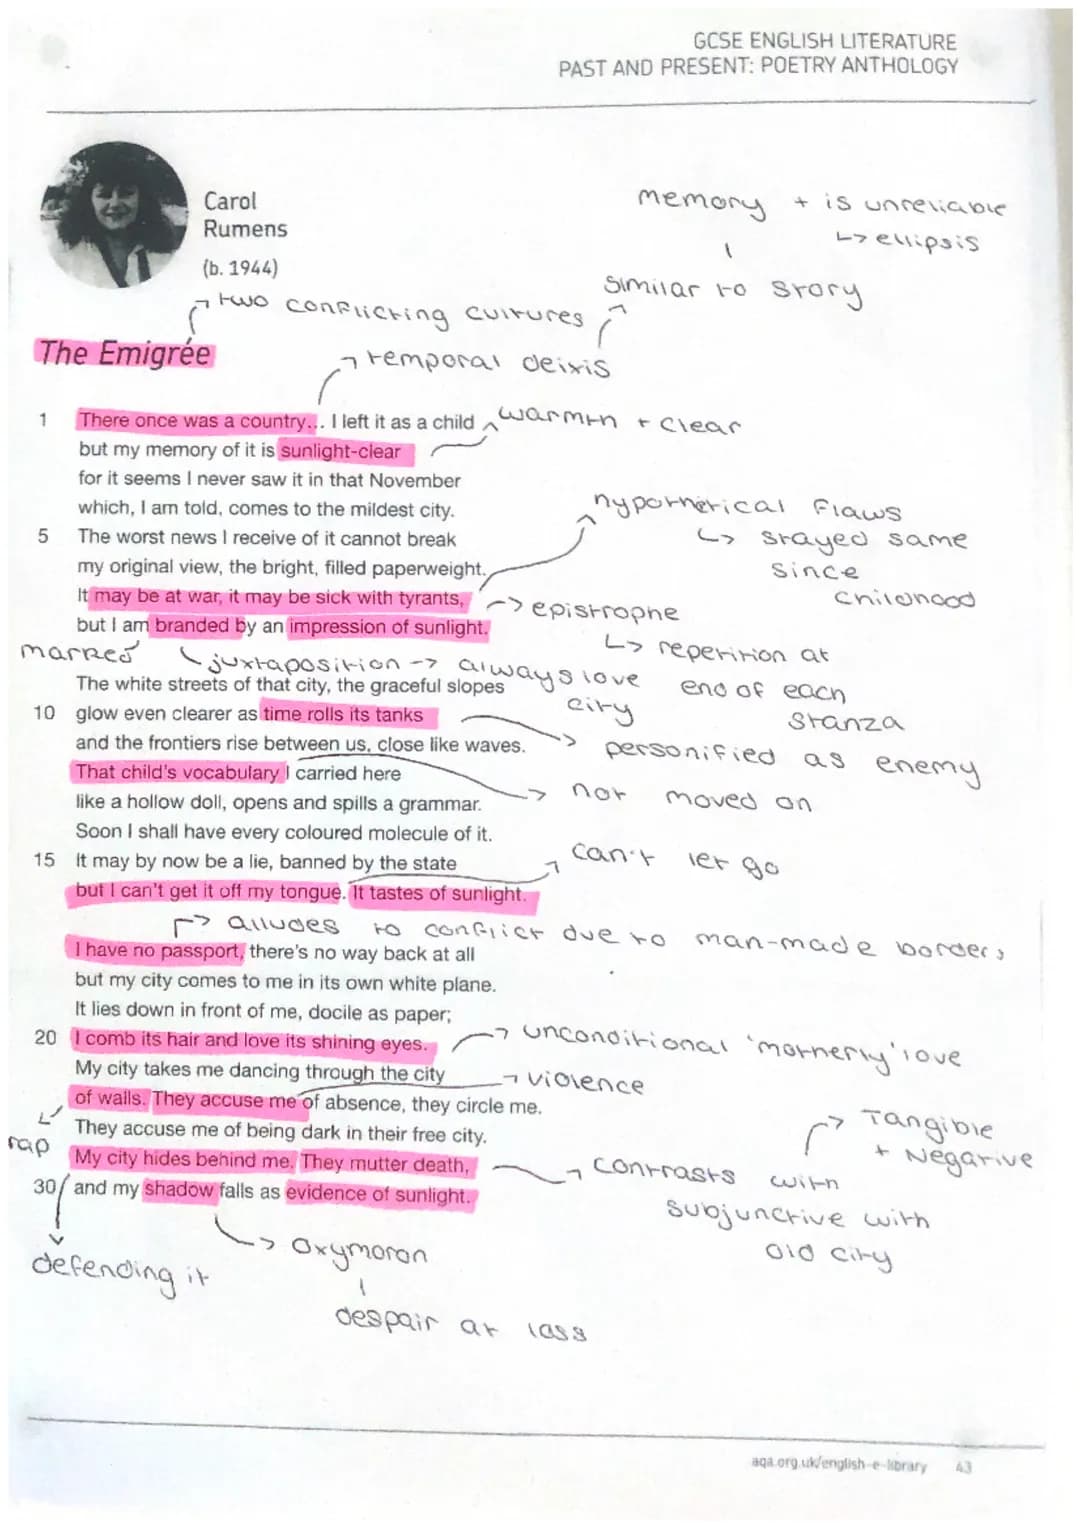 GCSE ENGLISH LITERATURE
PAST AND PRESENT: POETRY ANTHOLOGY
Carol
Rumens
(b. 1944)
memory + is unreliable
↳ ellipsis
similar to story
two conflicting cultures
The Emigrée
temporal deixis
1 There once was a country... I left it as a child
warmth + clear
but my memory of it is sunlight-clear
for it seems I never saw it in that November
which, I am told, comes to the mildest city.
hypothetical flaws
↳ stayed same
since
childhood
5 The worst news I receive of it cannot break
my original view, the bright, filled paperweight.
It may be at war, it may be sick with tyrants,
→ epistrophe
but I am branded by an impression of sunlight.
↳ repetition at
end of each
stanza
marked
juxtaposition → always love
city
The white streets of that city, the graceful slopes
10 glow even clearer as time rolls its tanks
→ personified as enemy
and the frontiers rise between us, close like waves.
That child's vocabulary I carried here
→ not moved on
like a hollow doll, opens and spills a grammar.
Soon I shall have every coloured molecule of it.
15 It may by now be a lie, banned by the state
can't let go
but I can't get it off my tongue. It tastes of sunlight.
→ alludes to conflict due to man-made borders
I have no passport, there's no way back at all
but my city comes to me in its own white plane.
It lies down in front of me, docile as paper;
20 I comb its hair and love its shining eyes.
→ unconditional 'motherly' love
My city takes me dancing through the city
→ violence
of walls. They accuse me of absence, they circle me.
They accuse me of being dark in their free city.
rap
My city hides behind me. They mutter death,
→ contrasts with
subjunctive with
old city
→ Tangible
+ Negative
30 and my shadow falls as evidence of sunlight.
→ oxymoron
despair at loss
defending it
aqa.org.uk/english-e-library 43